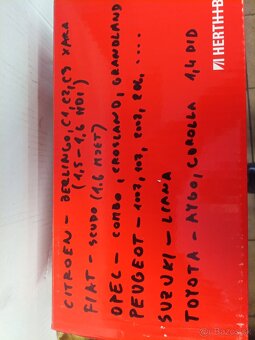 HERTH+B
CITROEN - BERLINGO, C1, C2, C3 XARA
(1,5-1,6 HDI)
FIAT - SCUDO (1,6 MJET)
OPEL - COMBO, CROSSLAND, GRANDLAND
PEUGEOT - 1007, 107, 2008, 206, ....
SUZUKI - LIANA
TOYOTA - AYGO, COROLLA 1,4 DID